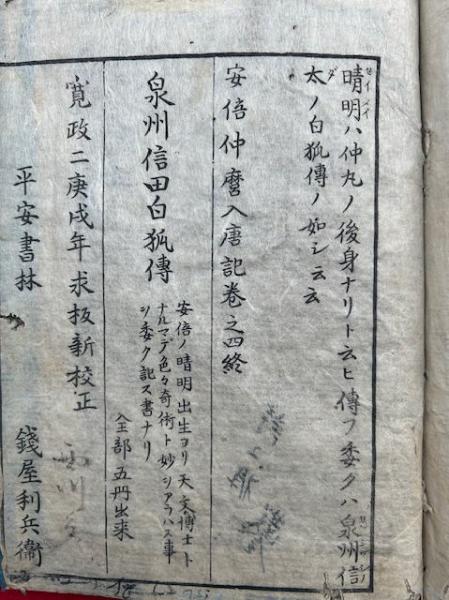 晴明ハ仲丸ノ後身ナリト云ヒ傳フ委クハ泉州信
太ノ白狐傳ノ如シ云云
安倍仲麿入唐記卷之四終
泉州信田白狐傳
安倍ノ晴明出生ヨリ天文博士ト
ナルマデ色々奇術ト妙シアラハス事
ヲ委ク記ス書ナリ
全部五冊出来
寛政二庚戌年求板新校正
平安書林 錢屋利兵衞